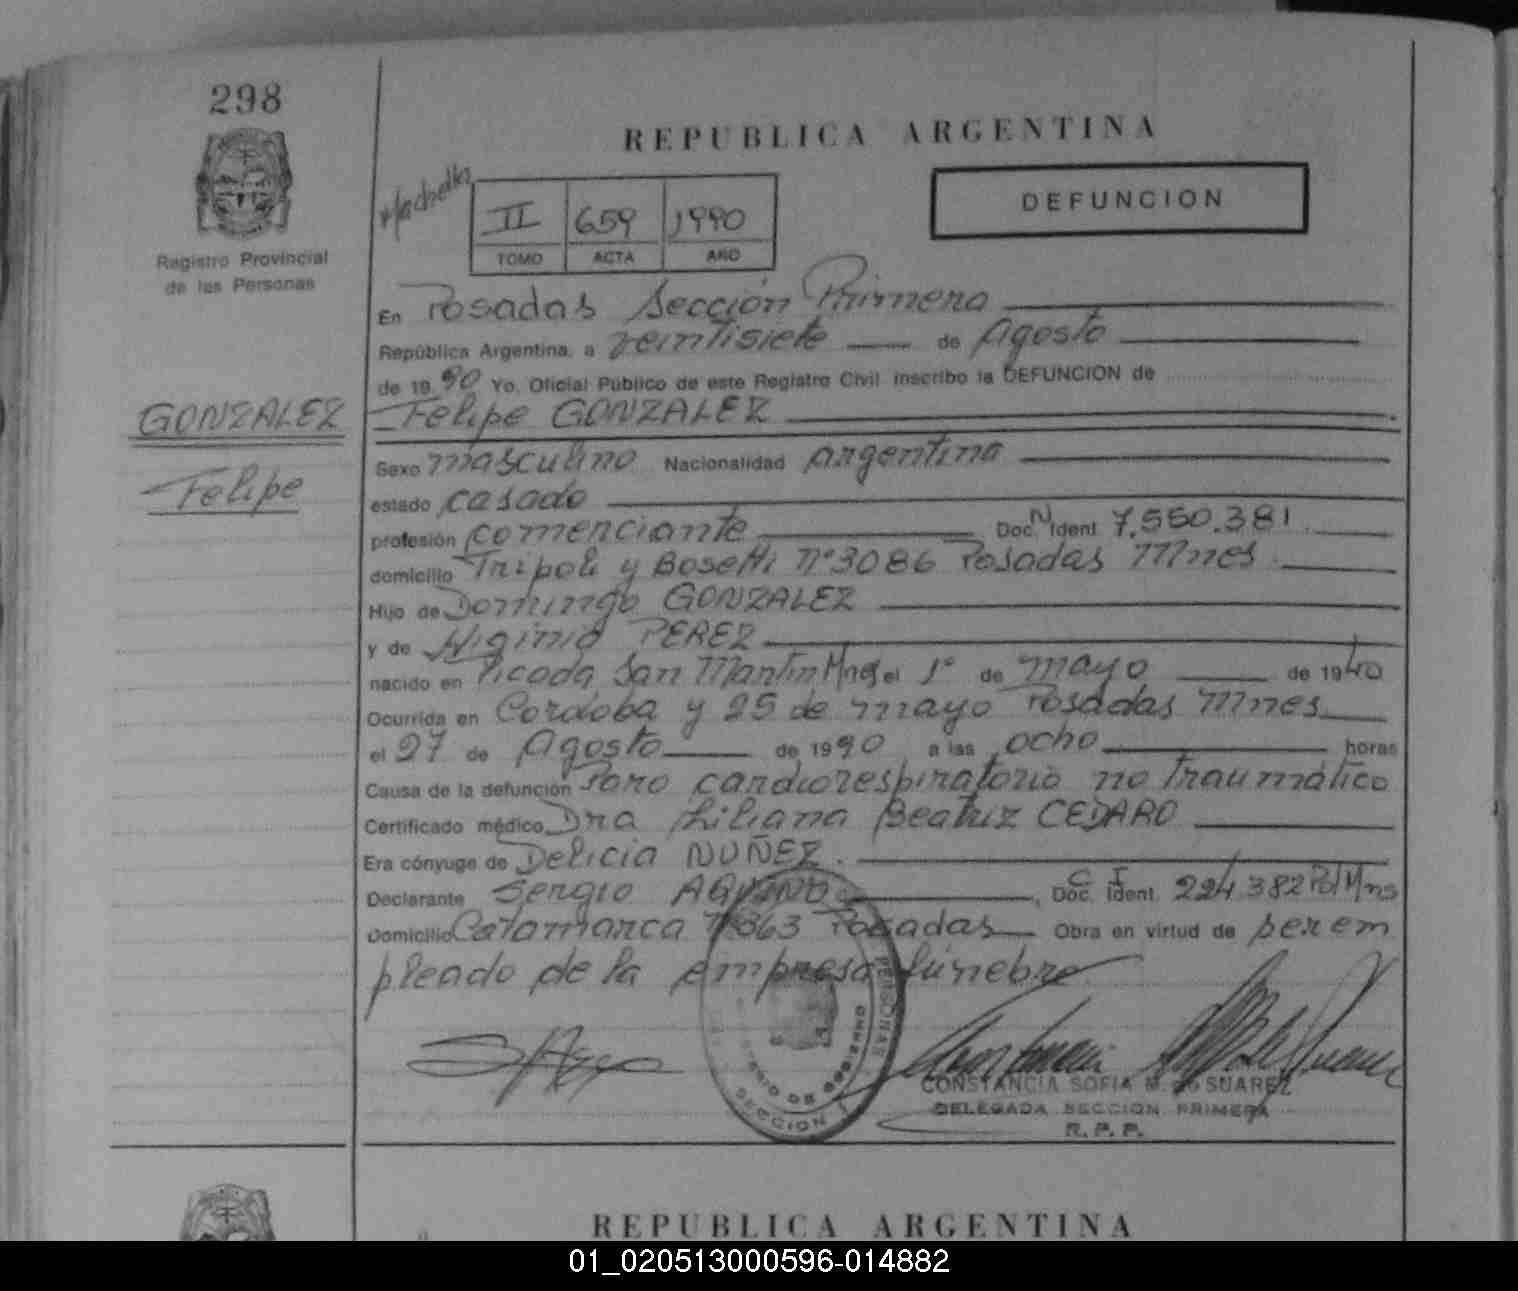 298
REPUBLICA ARGENTINA
II 659 1990
TOMO ACTA AÑO
DEFUNCION
Registro Provincial
de las Personas
En Posadas Sección Primera
República Argentina, a veintisiete de Agosto
de 1990 Yo, Oficial Público de este Registro Civil inscribo la DEFUNCION de
GONZALEZ
Felipe
Felipe GONZALEZ
Sexo masculino Nacionalidad argentina
estado casado
profesión comerciante Doc. N Ident. 7.550.381
domicilio Tripoli y Bosetti Nº 3086 Posadas Mnes.
Hijo de Domingo GONZALEZ
y de Higinia PEREZ
nacido en Picada San Martin Mnes el 1º de mayo de 1940
Ocurrida en Cordoba y 25 de mayo Posadas Mnes
el 27 de Agosto de 1990 a las ocho horas
Causa de la defunción Paro cardiorespiratorio no traumático
Certificado médico Dra Liliana Beatriz CEDARO
Era cónyuge de Delicia NUÑEZ.
Declarante Sergio AQUINO Doc. C I Ident. 224.382 Pol Mns
Domicilio Catamarca Nº 363 Posadas Obra en virtud de ser em
pleado de la empresa fúnebre
CONSTANCIA SOFIA M. de SUAREZ
DELEGADA SECCION PRIMERA
R. P. P.
SECCION 1
REPUBLICA ARGENTINA
01_020513000596-014882